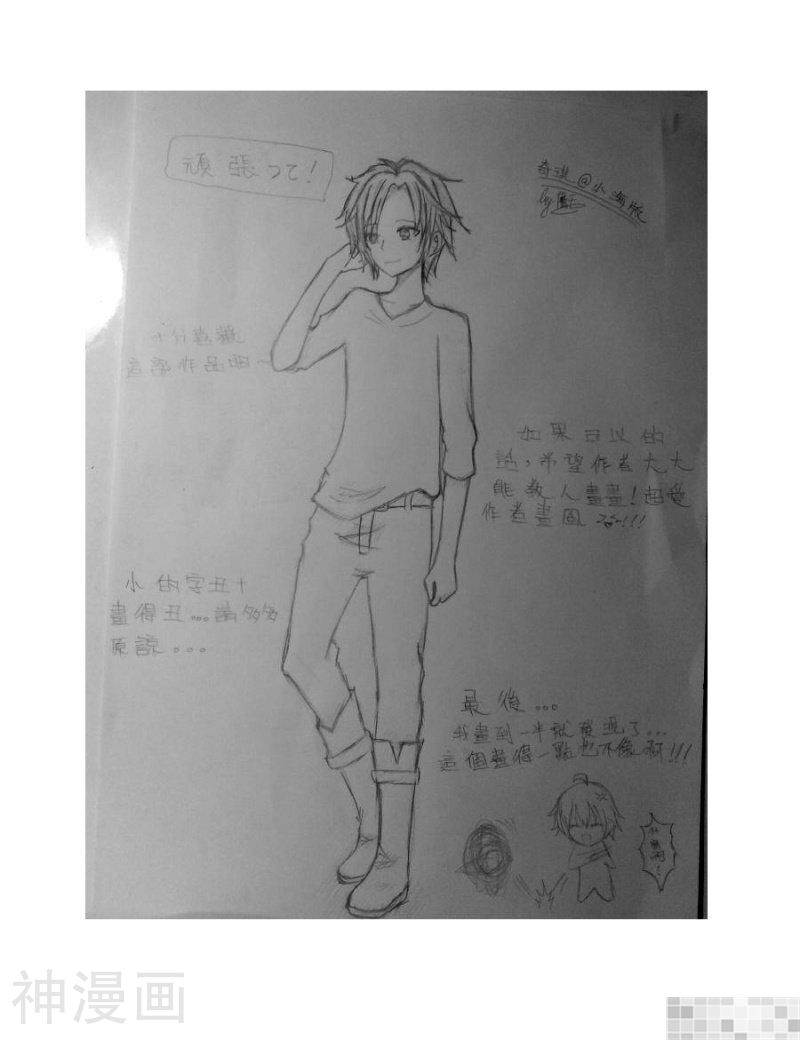 頑張って!
奇洪@小海版
by
十分喜歡
這部作品啊~
如果可以的
話,希望作者大大
能教人畫畫!超愛
作者畫圖
小的字丑+
畫得丑...請多多
原諒...
最後...
我畫到一半就發現了...
這個畫得一點也不像啊!!!
神漫画